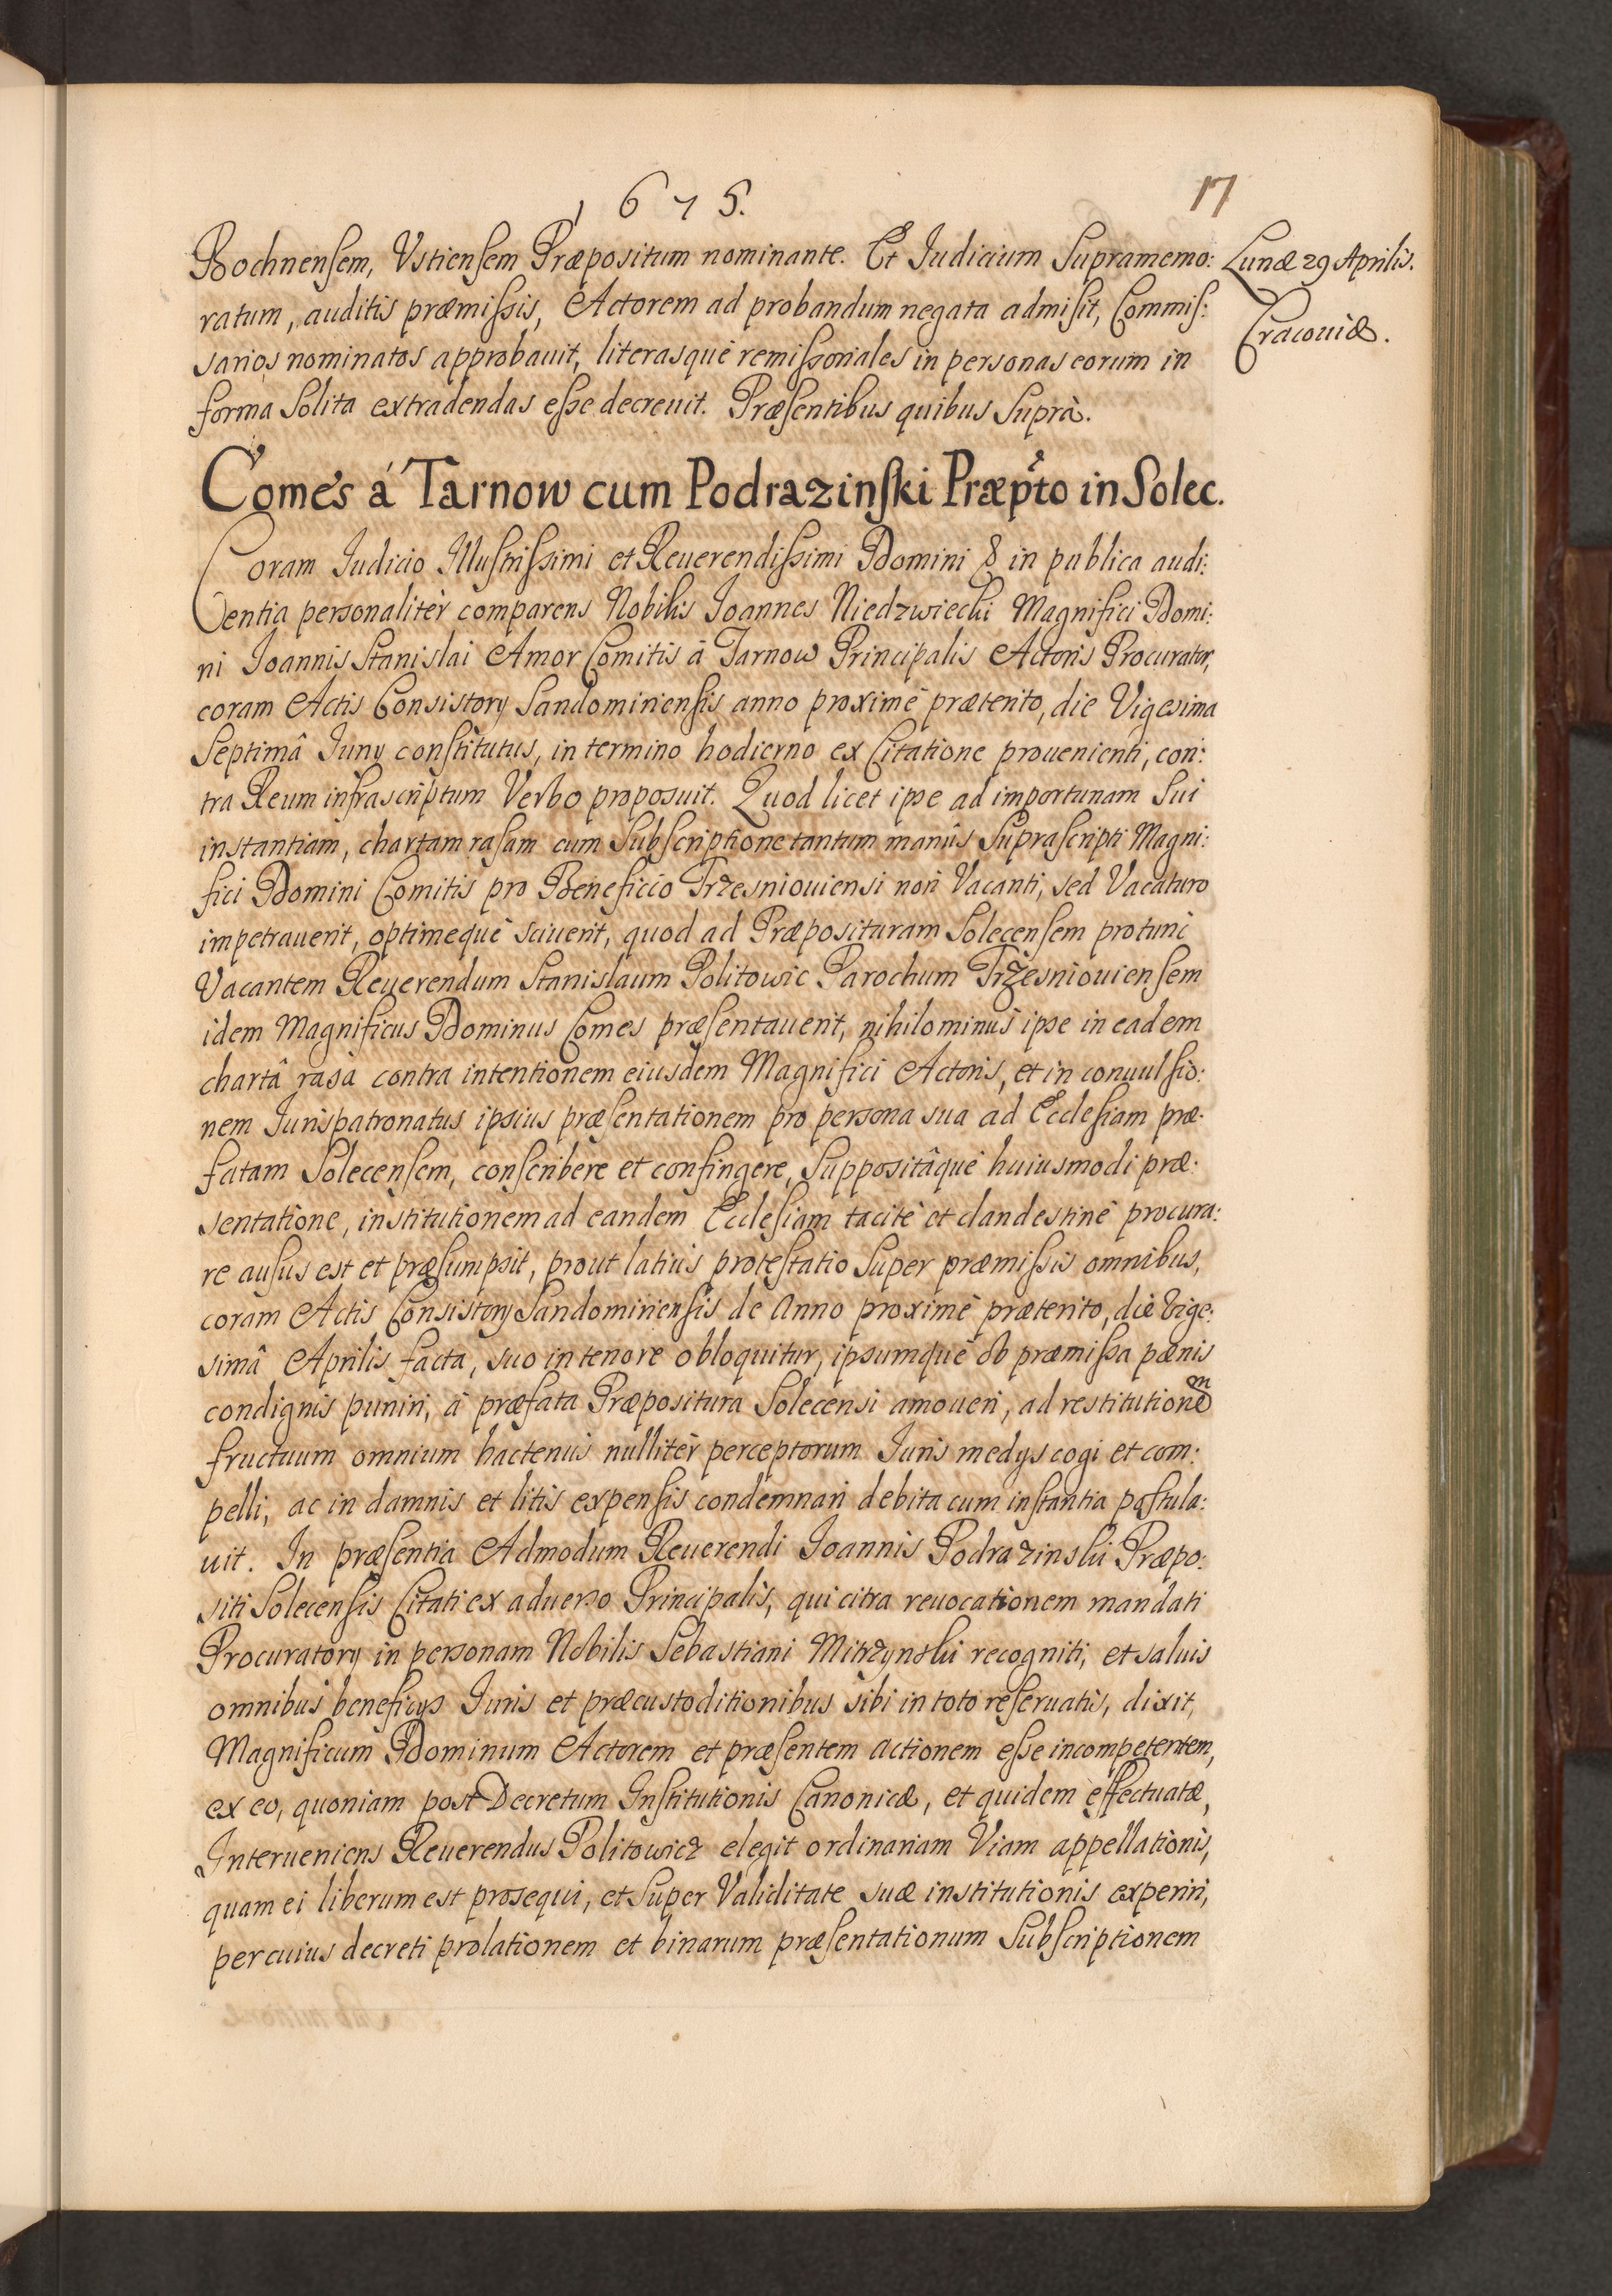 1675.
17
Bochnensem, Vstiensem Præpositum nominante. Et Iudicium Supramemo:
Lunæ 29 Aprilis.
ratum, auditis præmissis, Actorem ad probandum negata admisit, Commis:
Cracouiæ.
sarios nominatos approbauit, literasque remissoriales in personas eorum in
forma Solita extradendas esse decreuit. Præsentibus quibus Suprà.
Comes á Tarnow cum Podrazinski Præpto in Solec.
Coram Iudicio Illustrissimi et Reuerendissimi Domini & in publica audi:
entia personalitèr comparens Nobilis Ioannes Niedzwiecki Magnifici Domi:
ni Ioannis Stanislai Amor Comitis á Tarnow Principalis Actoris Procurator,
coram Actis Consistorÿ Sandomiriensis anno proximè præterito, die Vigesima
Septimâ Iunÿ constitutus, in termino hodierno ex Citatione prouenienti, con:
tra Reum infrascriptum Verbo proposuit. Quod licet ipse ad importunam Sui
instantiam, chartam rasam cum Subscriptione tantum manûs Suprascripti Magni:
fici Domini Comitis pro Beneficio Trzesniouiensi non Vacanti, sed Vacaturo
impetrauerit, optimequè sciuerit, quod ad Præposituram Solecensem protunc
Vacantem Reuerendum Stanislaum Politowic Parochum Trżesniouiensem
idem Magnificus Dominus Comes præsentauerit, nihilominus ipse in eadem
chartâ rasâ contra intentionem eiusdem Magnifici Actoris, et in conuulsio:
nem Iurispatronatus ipsius præsentationem pro persona sua ad Ecclesiam præ:
fatam Solecensem, conscribere et confingere, Suppositâquè huiusmodi præ:
sentatione, institutionem ad eandem Ecclesiam tacitè et clandestinè procura:
re ausus est et præsumpsit, prout latiùs protestatio Super præmissis omnibus,
coram Actis Consistorÿ Sandomiriensis de Anno proximè præterito, die Vige:
simâ Aprilis facta, suo in tenore obloquitur, ipsumquè ob præmissa pænis
condignis puniri, à præfata Præpositura Solecensi amoueri, ad restitutionem
fructuum omnium hactenus nullitèr perceptorum Iuris medÿs cogi et com:
pelli, ac in damnis et litis expensis condemnari debita cum instantia postula:
uit. In præsentia Admodum Reuerendi Ioannis Podrazinski Præpo:
siti Solecensis Citati ex aduerso Principalis, qui citra reuocationem mandati
Procuratorÿ in personam Nobilis Sebastiani Mitrzynski recogniti, et saluis
omnibus beneficÿs Iuris et præcustoditionibus sibi in toto reseruatis, dixit,
Magnificum Dominum Actorem et præsentem actionem esse incompetentem,
ex eo, quoniam post Decretum Institutionis Canonicæ, et quidem effectuatæ,
Interueniens Reuerendus Politowicz elegit ordinariam Viam appellationis,
quam ei liberum est prosequi, et Super Validitate suæ institutionis experiri,
per cuius decreti prolationem et binarum præsentationum Subscriptionem